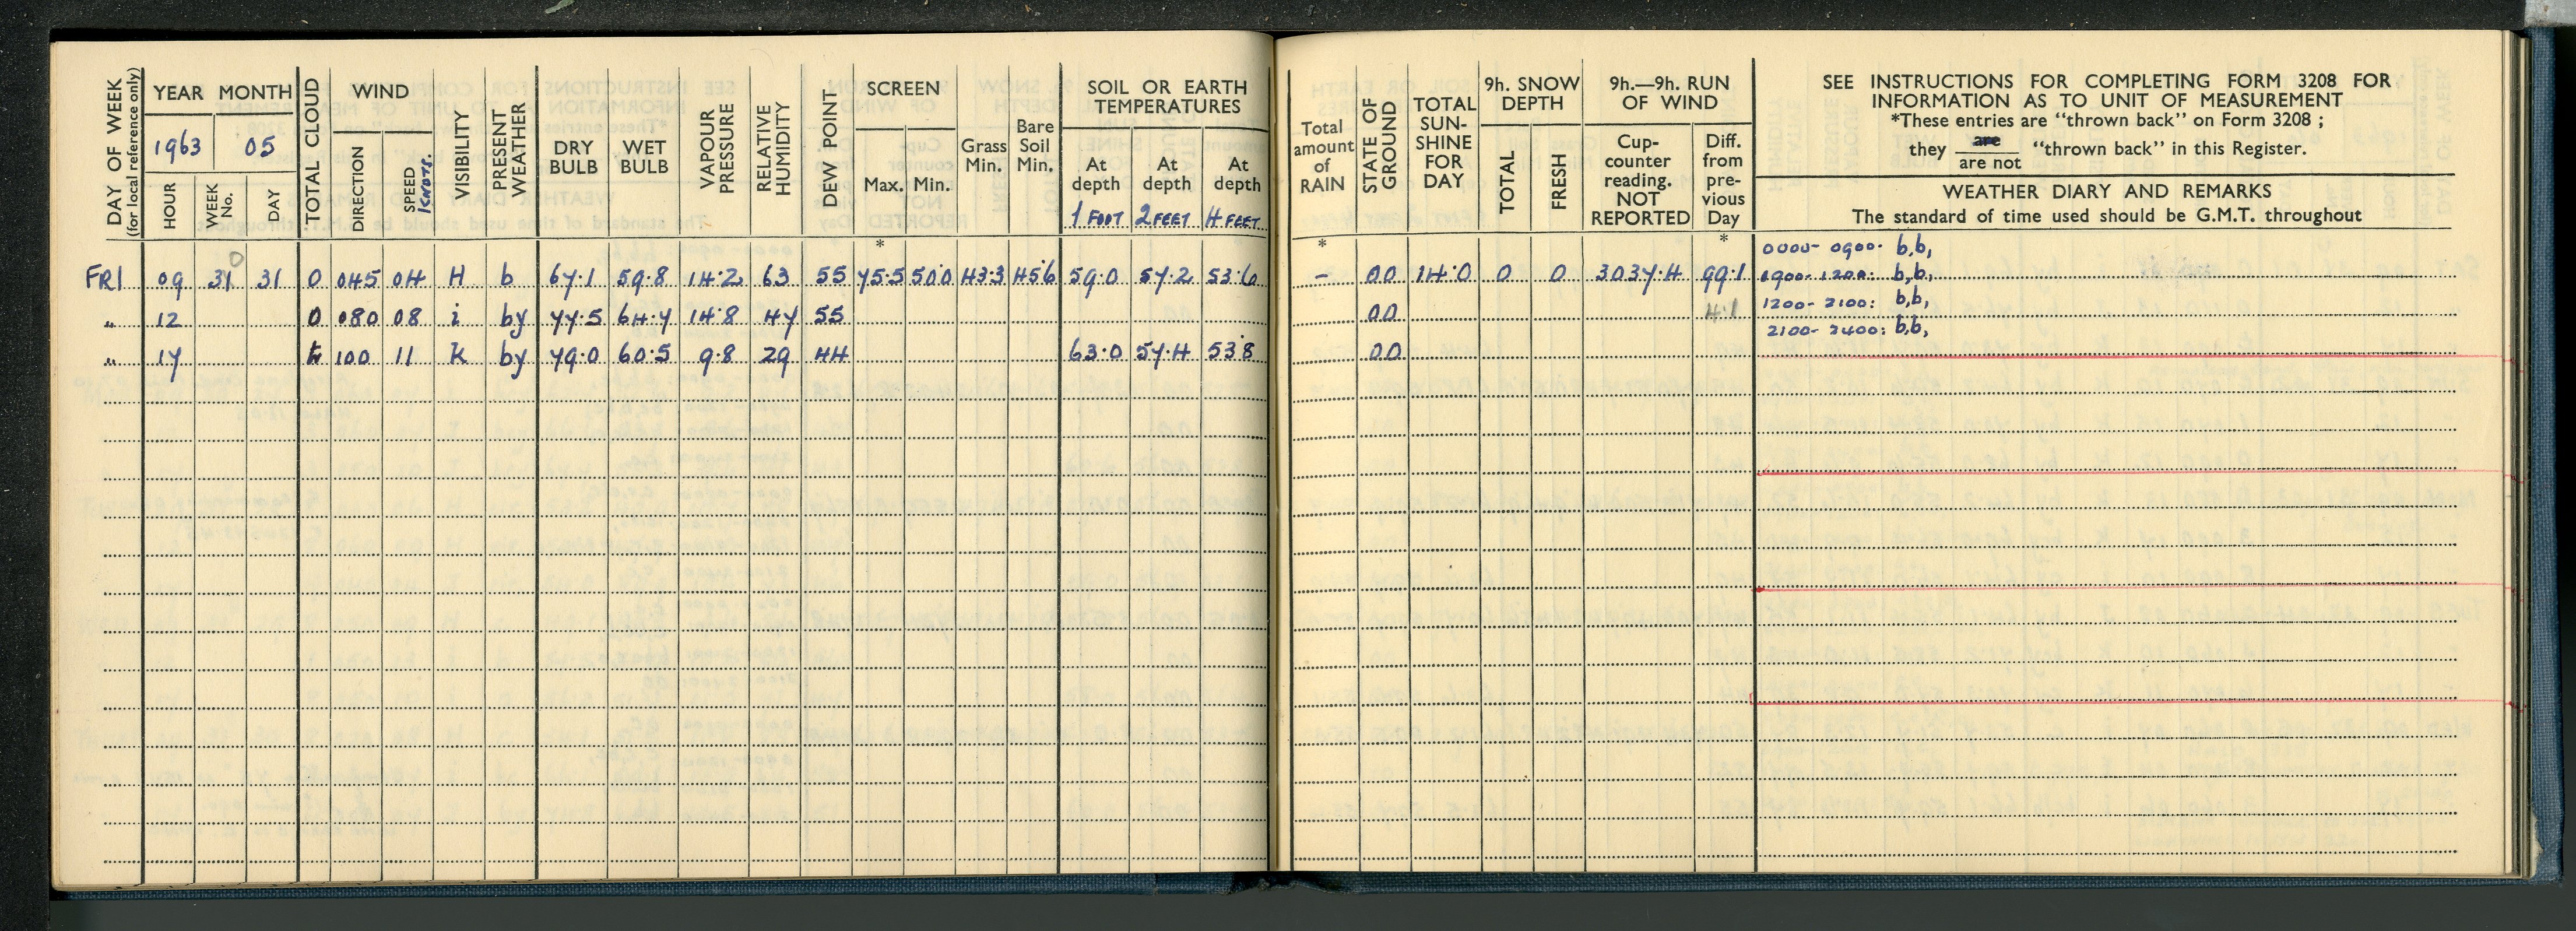 DAY OF WEEK (for local reference only)
YEAR MONTH
1963 05
HOUR WEEK No. DAY
TOTAL CLOUD
WIND
DIRECTION SPEED KNOTS.
VISIBILITY
PRESENT WEATHER
DRY BULB
WET BULB
VAPOUR PRESSURE
RELATIVE HUMIDITY
DEW POINT
SCREEN
Max. Min.
Grass Min.
Bare Soil Min.
SOIL OR EARTH TEMPERATURES
At depth 1 FOOT At depth 2 FEET At depth 4 FEET
Total amount of RAIN
STATE OF GROUND
TOTAL SUN-SHINE FOR DAY
9h. SNOW DEPTH
TOTAL FRESH
9h.—9h. RUN OF WIND
Cup-counter reading. NOT REPORTED
Diff. from pre-vious Day
SEE INSTRUCTIONS FOR COMPLETING FORM 3208 FOR
INFORMATION AS TO UNIT OF MEASUREMENT
*These entries are "thrown back" on Form 3208 ;
they are / are not "thrown back" in this Register.
WEATHER DIARY AND REMARKS
The standard of time used should be G.M.T. throughout
* * *
FRI 09 31 31 0 045 04 H b 67.1 59.8 14.2 63 55 75.5 50.0 43.3 45.6 59.0 57.2 53.6 - 00 14.0 0 0 3037.4 99.1
„ 12 0 080 08 i by 77.5 64.7 14.8 47 55 00 4.1
„ 17 100 11 K by 79.0 60.5 9.8 29 44 63.0 57.4 53.8 00
0000- 0900. b,b,
0900-1200: b,b,
1200- 2100: b,b,
2100- 2400: b,b,